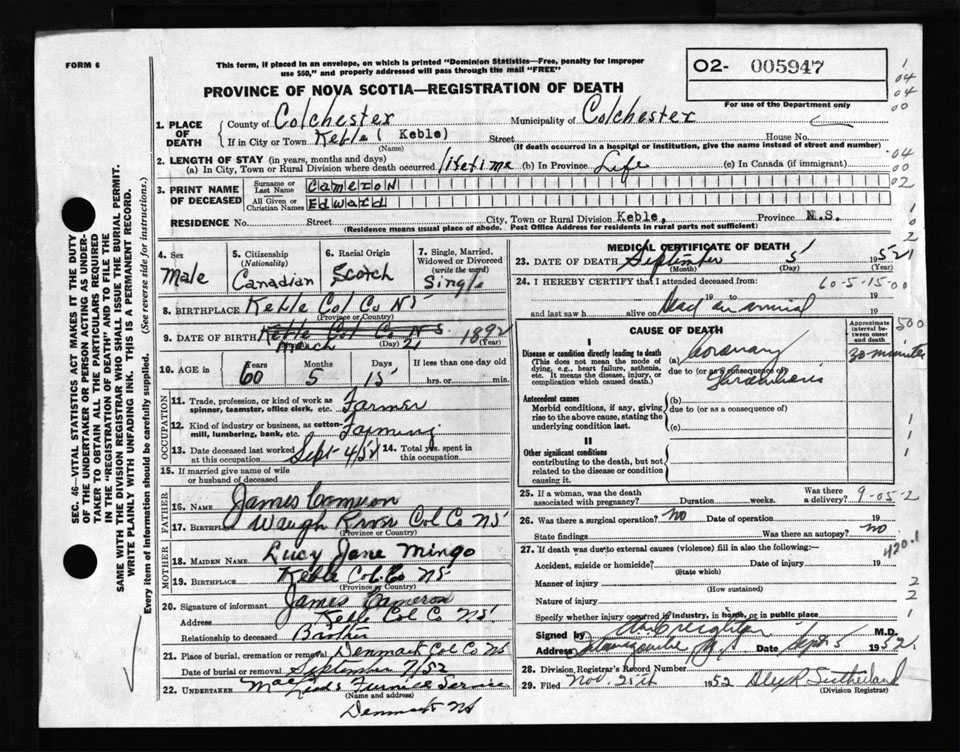 FORM 6
This form, if placed in an envelope, on which is printed "Dominion Statistics—Free, penalty for improper
use $50," and properly addressed will pass through the mail "FREE"
O2- 005947
For use of the Department only
PROVINCE OF NOVA SCOTIA—REGISTRATION OF DEATH
1. PLACE OF DEATH
County of Colchester Municipality of Colchester
If in City or Town Keble ( Keble) Street House No.
(Name) (If death occurred in a hospital or institution, give the name instead of street and number)
2. LENGTH OF STAY (in years, months and days)
(a) In City, Town or Rural Division where death occurred lifetime (b) In Province Life (c) In Canada (if immigrant)
3. PRINT NAME OF DECEASED
Surname or Last Name Cameron
All Given or Christian Names Edward
RESIDENCE No. Street City, Town or Rural Division Keble, Province N.S.
(Residence means usual place of abode. Post Office Address for residents in rural parts not sufficient)
4. Sex Male
5. Citizenship (Nationality) Canadian
6. Racial Origin Scotch
7. Single, Married, Widowed or Divorced (write the word) Single
8. BIRTHPLACE Keble Col Co NS
(Province or Country)
9. DATE OF BIRTH Keble Col Co NS March 21 1892
(Day) (Year)
10. AGE in Years Months Days If less than one day old
60 5 15 hrs. or min.
OCCUPATION
11. Trade, profession, or kind of work as spinner, teamster, office clerk, etc. Farmer
12. Kind of industry or business, as cotton-mill, lumbering, bank, etc. Farming
13. Date deceased last worked at this occupation Sept 4/52 14. Total yrs. spent in this occupation
15. If married give name of wife or husband of deceased
FATHER
16. NAME James Cameron
17. BIRTHPLACE Waugh River Col Co NS
(Province or Country)
MOTHER
18. MAIDEN NAME Lucy Jane Mingo
19. BIRTHPLACE Keble Col. Co NS
(Province or Country)
20. Signature of informant James Cameron
Address Keble Col Co NS
Relationship to deceased Brother
21. Place of burial, cremation or removal Denmark Col Co NS
Date of burial or removal September 7/52
22. UNDERTAKER Service
(Name and address)
Denmark NS
MEDICAL CERTIFICATE OF DEATH
23. DATE OF DEATH September 5 1952
(Month) (Day) (Year)
24. I HEREBY CERTIFY that I attended deceased from
19 to 19
and last saw h alive on Dead on arrival 19
60-5-15-00
CAUSE OF DEATH
Approximate interval between onset and death
I
Disease or condition directly leading to death
(This does not mean the mode of dying, e.g., heart failure, asthenia, etc. It means the disease, injury, or complication which caused death.)
(a) Coronary
due to (or as a consequence of)
30 minutes
Antecedent causes
Morbid conditions, if any, giving rise to the above cause, stating the underlying condition last.
(b)
due to (or as a consequence of)
(c)
II
Other significant conditions
contributing to the death, but not related to the disease or condition causing it.
25. If a woman, was the death associated with pregnancy? Duration weeks. Was there a delivery?
9-05-2
26. Was there a surgical operation? no Date of operation 19
State findings Was there an autopsy? no
420.1
27. If death was due to external causes (violence) fill in also the following:—
Accident, suicide or homicide? Date of injury 19
(State which)
Manner of injury
(How sustained)
Nature of injury
Specify whether injury occurred in industry, in home, or in public place
Signed by Creighton M.D.
Address Tatamagouche N.S. Date Sept 5 1952
28. Division Registrar's Record Number
29. Filed Nov. 25th 1952 Sutherland
(Division Registrar)
SEC. 46—VITAL STATISTICS ACT MAKES IT THE DUTY
OF THE UNDERTAKER OR PERSON ACTING AS UNDER-
TAKER TO OBTAIN ALL THE PARTICULARS REQUIRED
IN THE "REGISTRATION OF DEATH" AND TO FILE THE
SAME WITH THE DIVISION REGISTRAR WHO SHALL ISSUE THE BURIAL PERMIT.
WRITE PLAINLY WITH UNFADING INK. THIS IS A PERMANENT RECORD.
Every item of information should be carefully supplied. (See reverse side for instructions.)